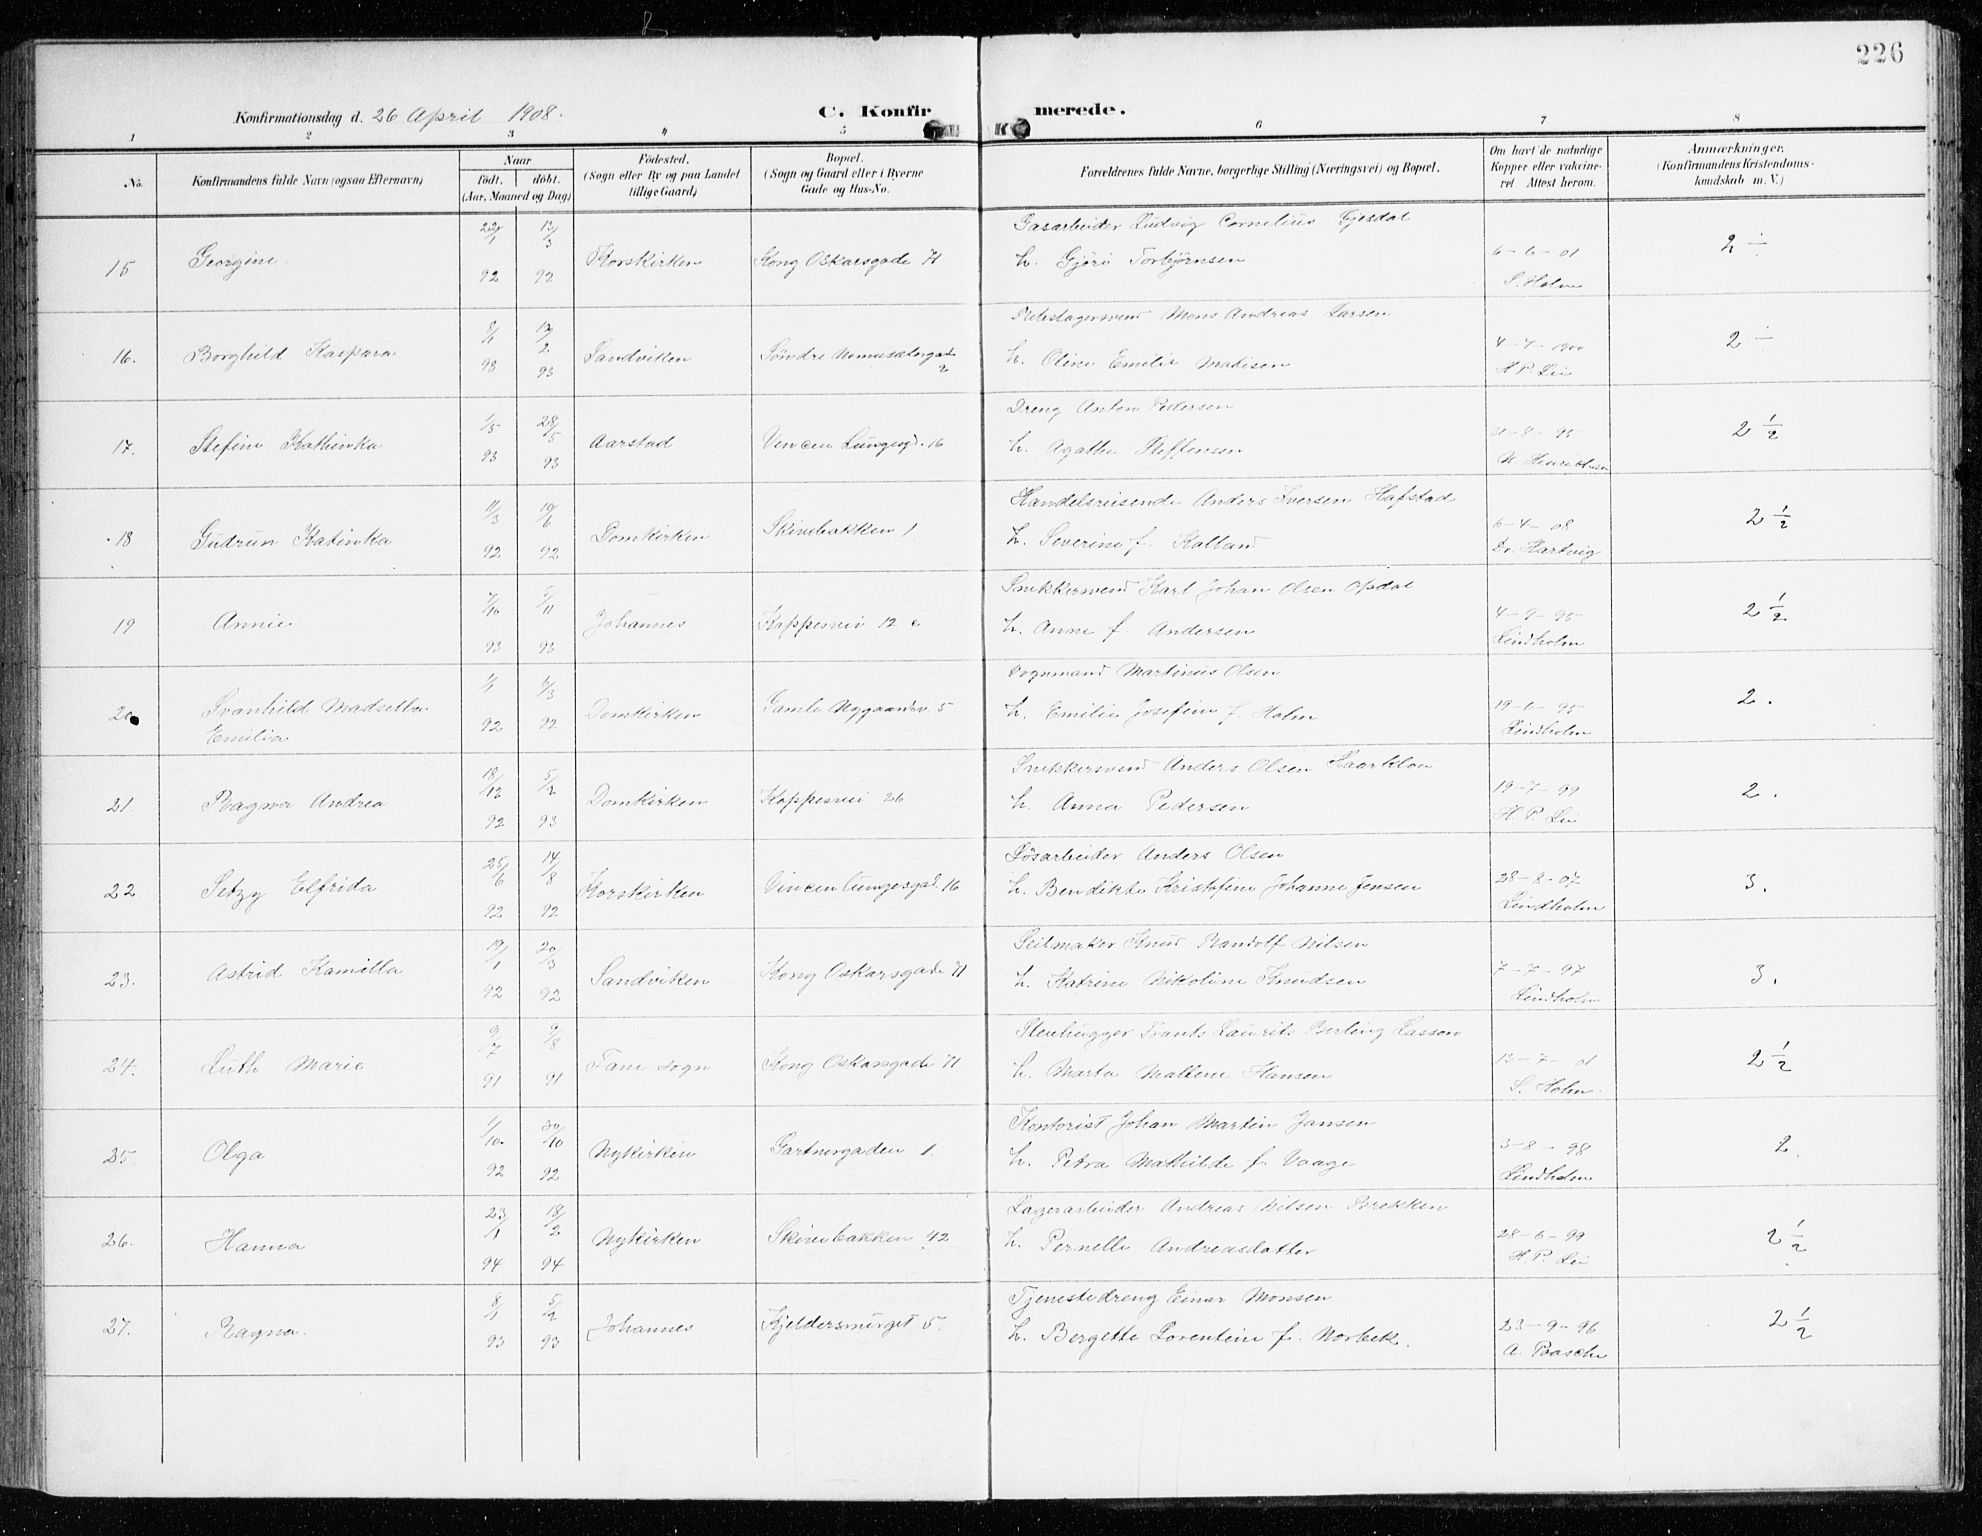 226
Konfirmationsdag d. 26 April 1908. C. Konfir merede.
1 2 3 4 5 6 7 8
No. Konfirmandens fulde Navn (ogsaa Efternavn) Naar født, døbt. (Aar, Maaned og Dag) Fødested. (Sogn eller By og paa Landet tillige Gaard) Bopæl. (Sogn og Gaard eller i Byerne Gade og Hus-No. Forældrenes fulde Navne, borgerlige Stilling (Næringsvei) og Bopæl. Om havt de naturlige Kopper eller vakcineret Attest herom. Anmærkninger. (Konfirmandens Kristendomskundskab m. V.)
22/1 13/3 Gasarbeider Ludvig Cornelius Gjesdal
15 Georgine. 92 92 Korskirken Kong Oskarsgade 71 h. Gjøri Torbjørnsen 6-6-01 S. Holm 2 ÷
8/1 12/2 Rebslagersvend Mons Andreas Larsen
16. Borghild Kaspara 93 93 Sandviken Søndre 2 h. Oline Emilie Madisen 4-7-1900 H. P. Lie 2 ÷
1/5 28/5 Dreng Anton Pedersen
17. Stefine Kathinka 93 93 Aarstad Vincen Lungesgd. 16 h. Agathe Steffensen 31-8-95 N. Henrichsen 2 1/2
11/3 19/6 Handelsreisende Anders Iversen Hafstad
18 Gudrun Katinka 92 92 Domkirken Skivebakken 1 h. Severine f. Kalland 6-4-08 Dr. Hartvig 2 1/2
7/10 5/11 Snekkersvend Karl Johan Olsen Opdal
19 Annie 93 93 Johannes Kappesvei 12 c h. Anne f. Andersen 4-9-95 Lindholm 2 1/2
1/1 6/3 Vognmand Martinus Olsen
20 Svanhild Madsella Emilia 92 92 Domkirken Gamle Nygaardsv. 5 h. Emilie Josefine f. Holm 19-6-95 Lindholm 2.
18/12 5/2 Snekkersvend Anders Olsen Haarklou
21. Ragna Andrea 92 93 Domkirken Kappesvei 26 h. Anna Pedersen 19-7-99 H. P. Lie 2.
25/6 14/8 Løsarbeider Anders Olsen
22. Setzy Elfrida 92 92 Korskirken Vincen Lungesgad. 16 h. Bendikte Kristofine Johanne Jensen 28-8-07 Lindholm 3.
19/1 20/3 Seilmaker Knud Randolf Nilsen
23. Astrid Kamilla 92 92 Sandviken Kong Oskarsgade 71 h. Katrine Nikoline Knudsen 7-7-97 Lindholm 3.
9/7 9/8 Stenhugger Frants Laurits Berling Lasson
24. Ruth Marie 91 91 Fane sogn Kong Oskarsgade 71 h. Marta Maltene Hansen 13-7-01 S. Holm. 2 1/2
1/10 30/10 Kontorist Johan Martin Jansen
25. Olga 92 92 Nykirken Gartnergaden 1. h. Petra Mathilde f. Vaage 3-8-98 Lindholm 2.
23/1 18/2 Lagerarbeider Andreas Nilsen Brekken
26. Hanna 94 94 Nykirken Skivebakken 42 h. Pernelle Andreasdatter 28-6-99 H. P. Lie 2 1/2
8/1 5/2 Tjenestedreng Einar Monsen
27. Ragna. 93 93 Johannes Kjeldersmuget 5. h. Bergette Lorentine f. Norbek. 23-9-96 A. Paasche 2 1/2